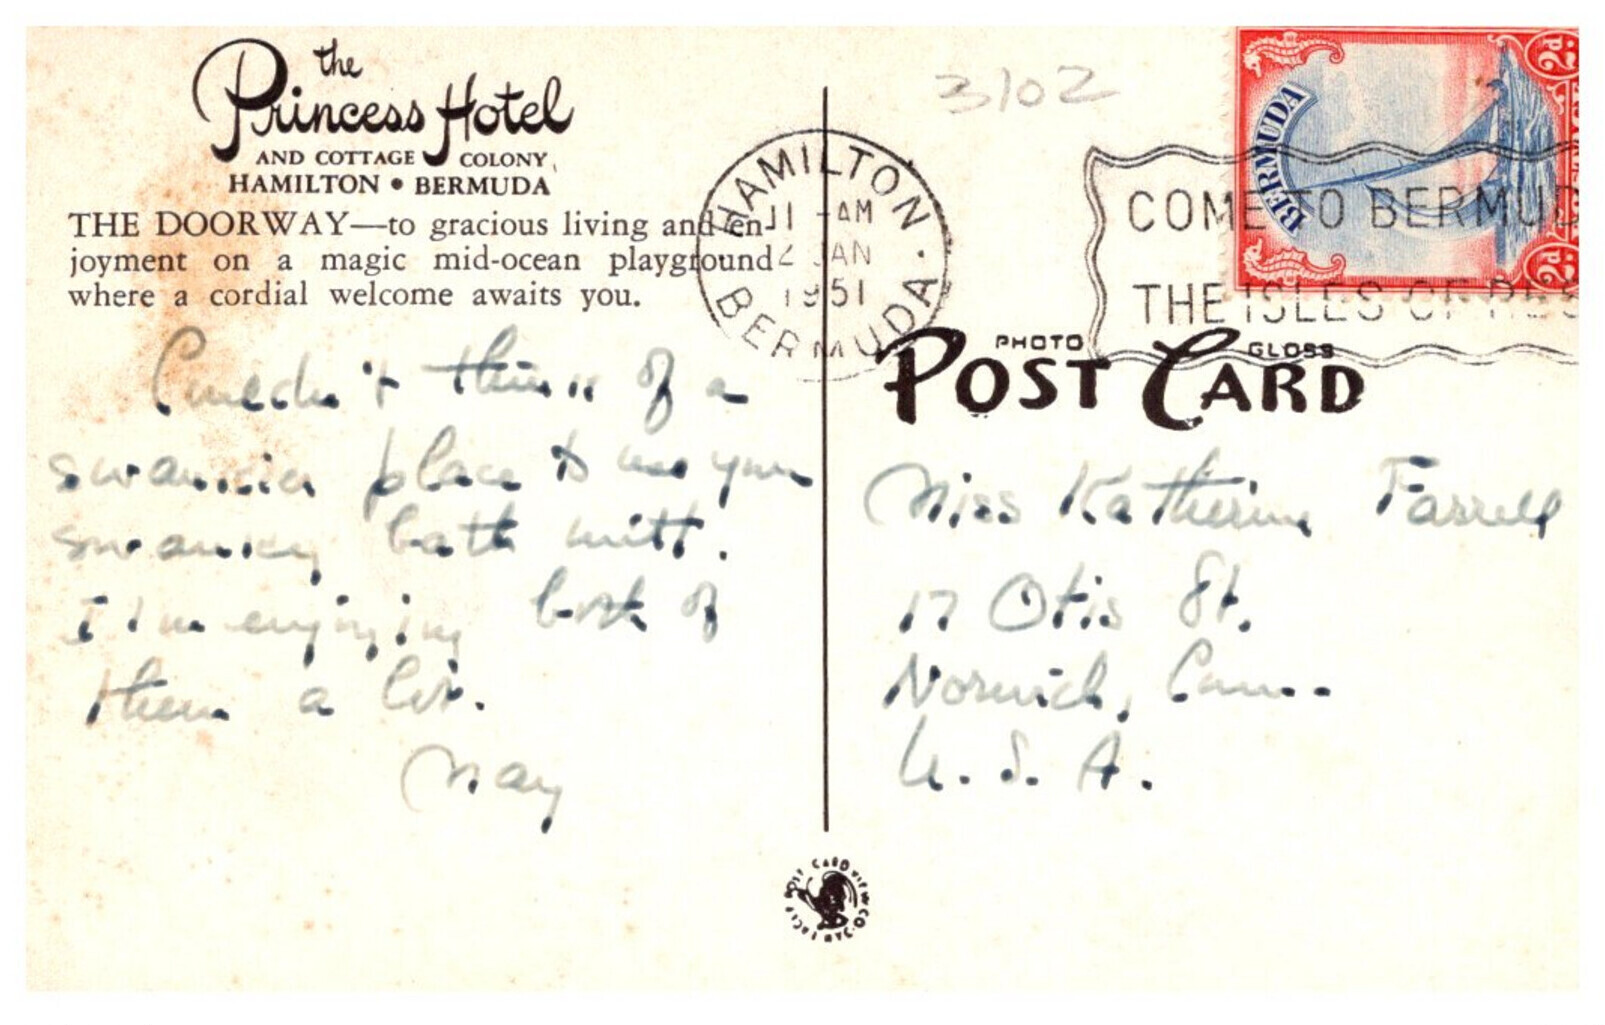 the
Princess Hotel
AND COTTAGE COLONY
HAMILTON • BERMUDA
THE DOORWAY—to gracious living and en-
joyment on a magic mid-ocean playground
where a cordial welcome awaits you.
Couldn't think of a
swankier place to use your
swanky bath mitt.
I I'm enjoying both of
them a lot.
May
3102
HAMILTON
11 - AM
JAN
1951
BERMUDA
BERMUDA
2d
2d
COME TO BERMUD
THE ISLES OF RES
PHOTO GLOSS
POST CARD
Miss Katherine Farrell
17 Otis St.
Norwich, Conn.
U.S.A.
POST CARD VIEW CO.